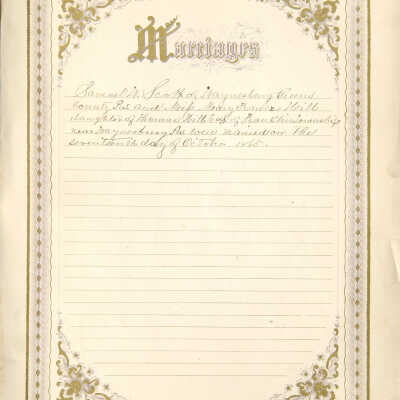 Marriages
Samuel W. Scott of Waynesburg Greene
County Pa and Miss Mary Hill
daughter of Thomas Hill of Franklin Township
near Waynesburg Pa were married on the
seventeenth day of October 1865.